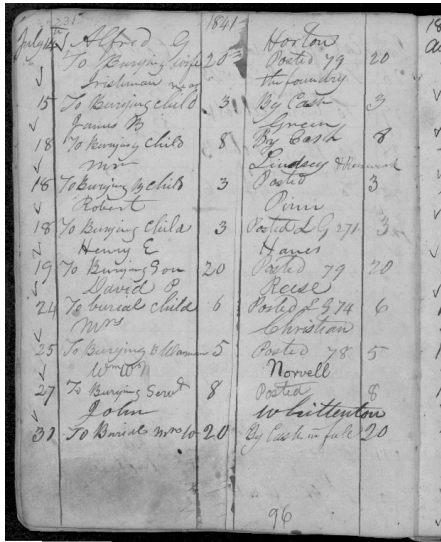 231
1841
July 14 Alfred G Horton
To Burying wife 20 Posted 79 20
Irishman near the foundry
15 To Burying child 3 By Cash 3
James B Green
18 To Burying Child 8 By Cash 8
Mrs Lindsey
18 To Burying B child 3 Posted 3
Robert Pinn
18 To Burying Child 3 Posted L G 271 3
Henry E Hanes
19 To Burying Son 20 Posted 79 20
David P Reese
24 To burial child 6 Posted L G 74 6
Mrs Christian
25 To Burying B Woman 5 Posted 78 5
Wm W Norvell
27 To Burying Servt 8 Posted 8
John Whittenton
31 To Burial Mrs W 20 By Cash in full 20
96
18